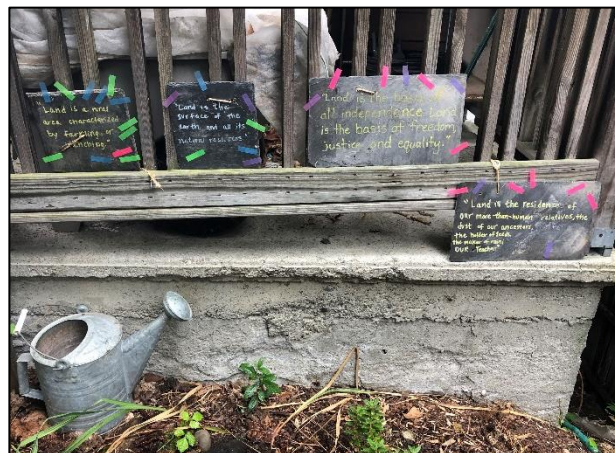 "Land is a rural
area characterized
by farming or
ranching."
"Land is the
surface of the
earth and all its
natural resources."
"Land is the basis of
all independence. Land
is the basis of freedom,
justice and equality."
"Land is the residence of
our more-than-human relatives, the
dust of our ancestors,
the holder of seeds,
the maker of rain,
our teacher"